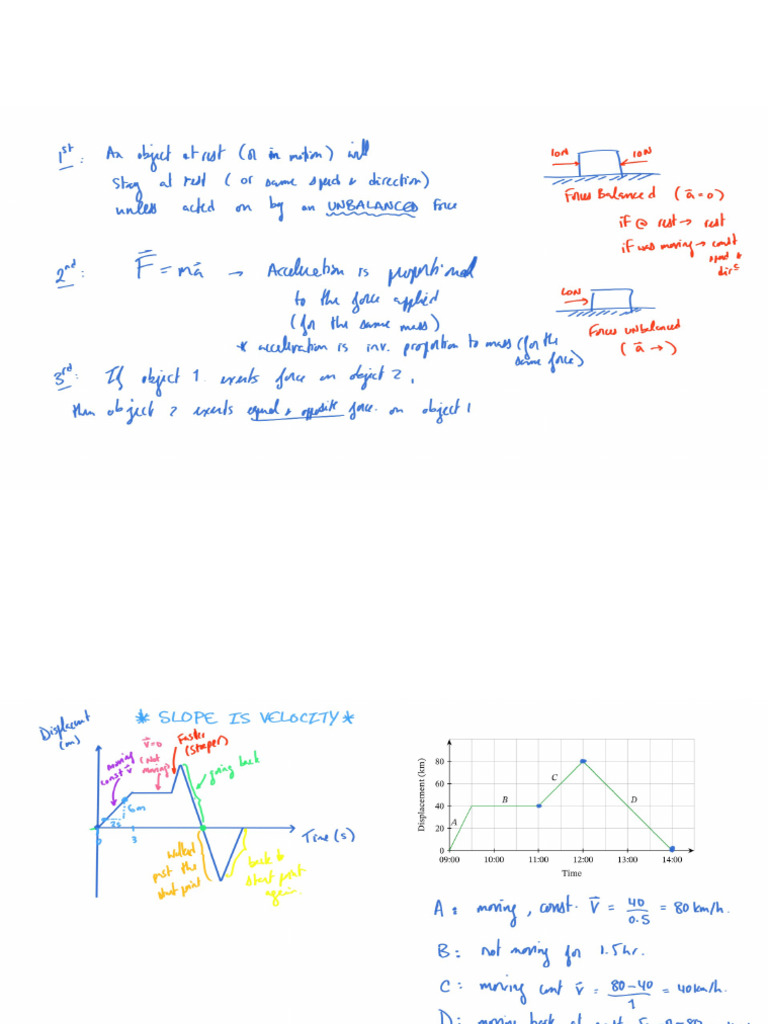 1st: An object at rest (or in motion) will
stay at rest (or same speed & direction)
unless acted on by an UNBALANCED Force
10N
10N
Forces Balanced (a⃗=0)
if @ rest → rest
if was moving → const
speed &
dirs
2nd: F⃗ = ma⃗ → Acceleration is proportional
to the force applied
(for the same mass)
* acceleration is inv. proportion to mass (for the
same force)
10N
Forces unbalanced
(a⃗ →)
3rd: If object 1 exerts force on object 2,
then object 2 exerts equal & opposite force on object 1
* SLOPE IS VELOCITY *
Displacement
(m)
moving
const v⃗
v⃗=0
(Not
moving)
Faster
(steeper)
going back
6m
2s
0
1
3
Time (s)
walked
past the
start point
back to
start point
again
Displacement (km)
80
60
40
20
0
A
B
C
D
09:00 10:00 11:00 12:00 13:00 14:00
Time
A: moving, const. v⃗ = 40/0.5 = 80 km/h.
B: not moving for 1.5hr.
C: moving cont v⃗ = 80-40/1 = 40km/h
D: moving back at